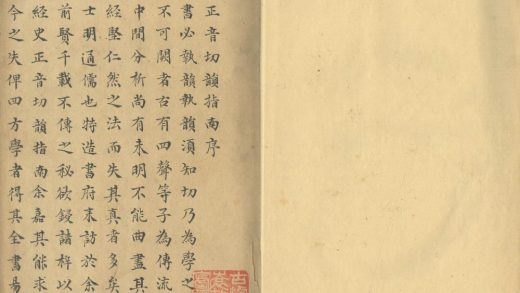 正音切韻指南序
書必執韻執韻須知切乃為學之
不可闕者古有四聲等子為傳流
中間分析尚有未明不能曲盡其
經堅仁然之法而失其真者多矣
士明通儒也特造書府未訪於余
前賢千載不傳之秘欲鋟諸梓以
經史正音切韻指南余嘉其能求
今之失俾四方學者得其全書易